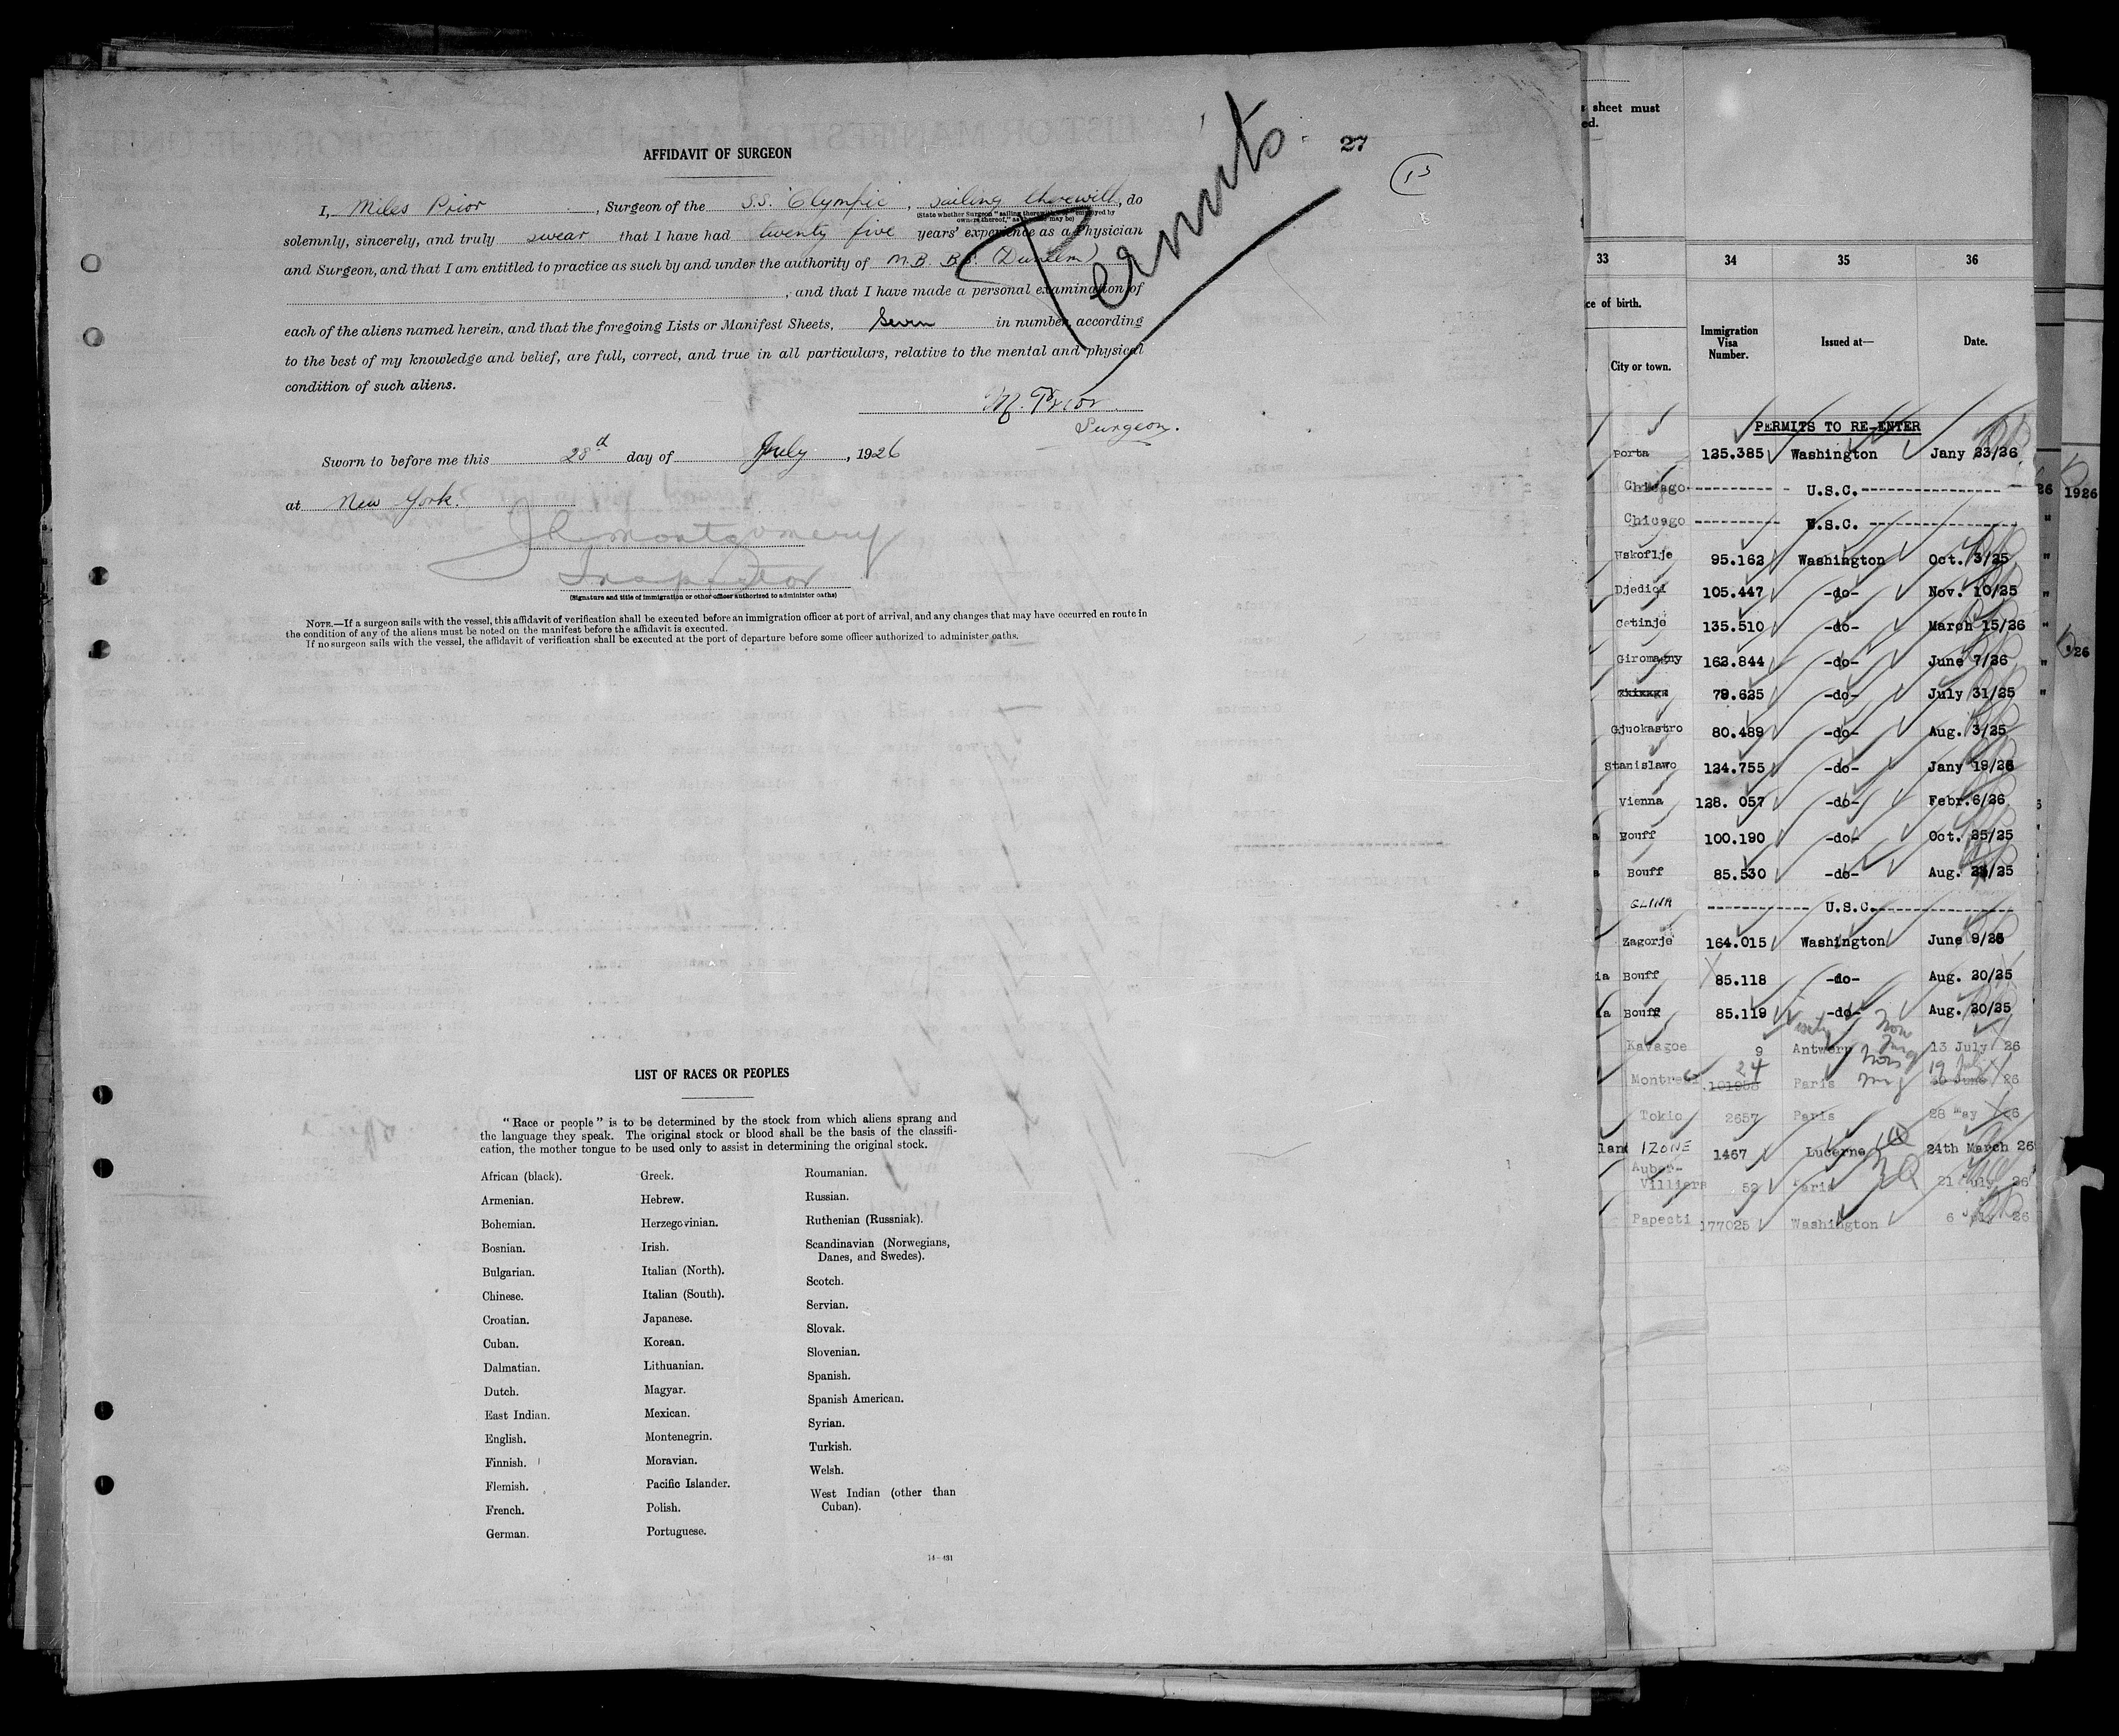 AFFIDAVIT OF SURGEON
Permits
27
I, Miles Prior, Surgeon of the S.S. "Olympic", sailing therewith, do
(State whether Surgeon "sailing therewith," or "employed by owners thereof," as the case may be)
solemnly, sincerely, and truly swear that I have had twenty five years' experience as a Physician
and Surgeon, and that I am entitled to practice as such by and under the authority of M.B. B.S. (Durelm)
, and that I have made a personal examination of
each of the aliens named herein, and that the foregoing Lists or Manifest Sheets, Seven in number, according
to the best of my knowledge and belief, are full, correct, and true in all particulars, relative to the mental and physical
condition of such aliens.
M. Prior
Surgeon.
Sworn to before me this 28d day of July, 1926
at New York.
Montgomery
Inspector
(Signature and title of immigration or other officer authorized to administer oaths)
NOTE.—If a surgeon sails with the vessel, this affidavit of verification shall be executed before an immigration officer at port of arrival, and any changes that may have occurred en route in
the condition of any of the aliens must be noted on the manifest before the affidavit is executed.
If no surgeon sails with the vessel, the affidavit of verification shall be executed at the port of departure before some officer authorized to administer oaths.
LIST OF RACES OR PEOPLES
"Race or people" is to be determined by the stock from which aliens sprang and
the language they speak. The original stock or blood shall be the basis of the classifi-
cation, the mother tongue to be used only to assist in determining the original stock.
African (black).
Armenian.
Bohemian.
Bosnian.
Bulgarian.
Chinese.
Croatian.
Cuban.
Dalmatian.
Dutch.
East Indian.
English.
Finnish.
Flemish.
French.
German.
Greek.
Hebrew.
Herzegovinian.
Irish.
Italian (North).
Italian (South).
Japanese.
Korean.
Lithuanian.
Magyar.
Mexican.
Montenegrin.
Moravian.
Pacific Islander.
Polish.
Portuguese.
Roumanian.
Russian.
Ruthenian (Russniak).
Scandinavian (Norwegians,
Danes, and Swedes).
Scotch.
Servian.
Slovak.
Slovenian.
Spanish.
Spanish American.
Syrian.
Turkish.
Welsh.
West Indian (other than
Cuban).
14—431
sheet must
ed.
33 34 35 36
ce of birth.
City or town.
Immigration
Visa
Number.
Issued at—
Date.
PERMITS TO RE-ENTER
Porta 125.385 Washington Jany 23/26
Chicago ---------- U.S.C. ----------
Chicago ---------- U.S.C. ----------
Uskoflje 95.162 Washington Oct. 3/25
Djedici 105.447 -do- Nov. 10/25
Cetinje 135.510 -do- March 15/26
Giromagny 162.844 -do- June 7/26
79.625 -do- July 31/25
Gjuokastro 80.489 -do- Aug. 3/25
Stanislawo 124.755 -do- Jany 19/26
Vienna 128. 057 -do- Febr.6/26
Bouff 100.190 -do- Oct. 25/25
Bouff 85.530 -do- Aug. /25
GLINA ---------- U.S.C. ----------
Zagorje 164.015 Washington June 9/26
ia Bouff 85.118 -do- Aug. 20/25
ia Bouff 85.119 -do- Aug. 20/25
Kavagoe 9 Antwerp 13 July 26
24 19 July
Montreal 101958 Paris 26
Tokio 2657 Paris 28 May 26
land IZONE 1467 Lucerne 24th March 26
Auber-
Villiers 52 Paris 21 July 26
Papeeti 177025 Washington 6 July 26
26 1926